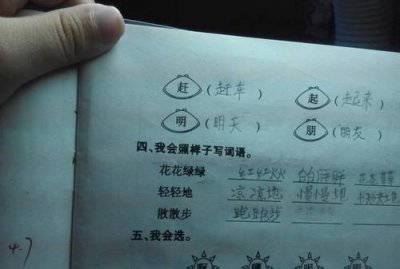 赶(赶车) 起(起来)
明(明天) 朋(朋友)
四、我会照样子写词语。
花花绿绿 红红火火 白白胖胖
轻轻地 凉凉地 慢慢地
散散步 跑跑步
五、我会选。
4.7